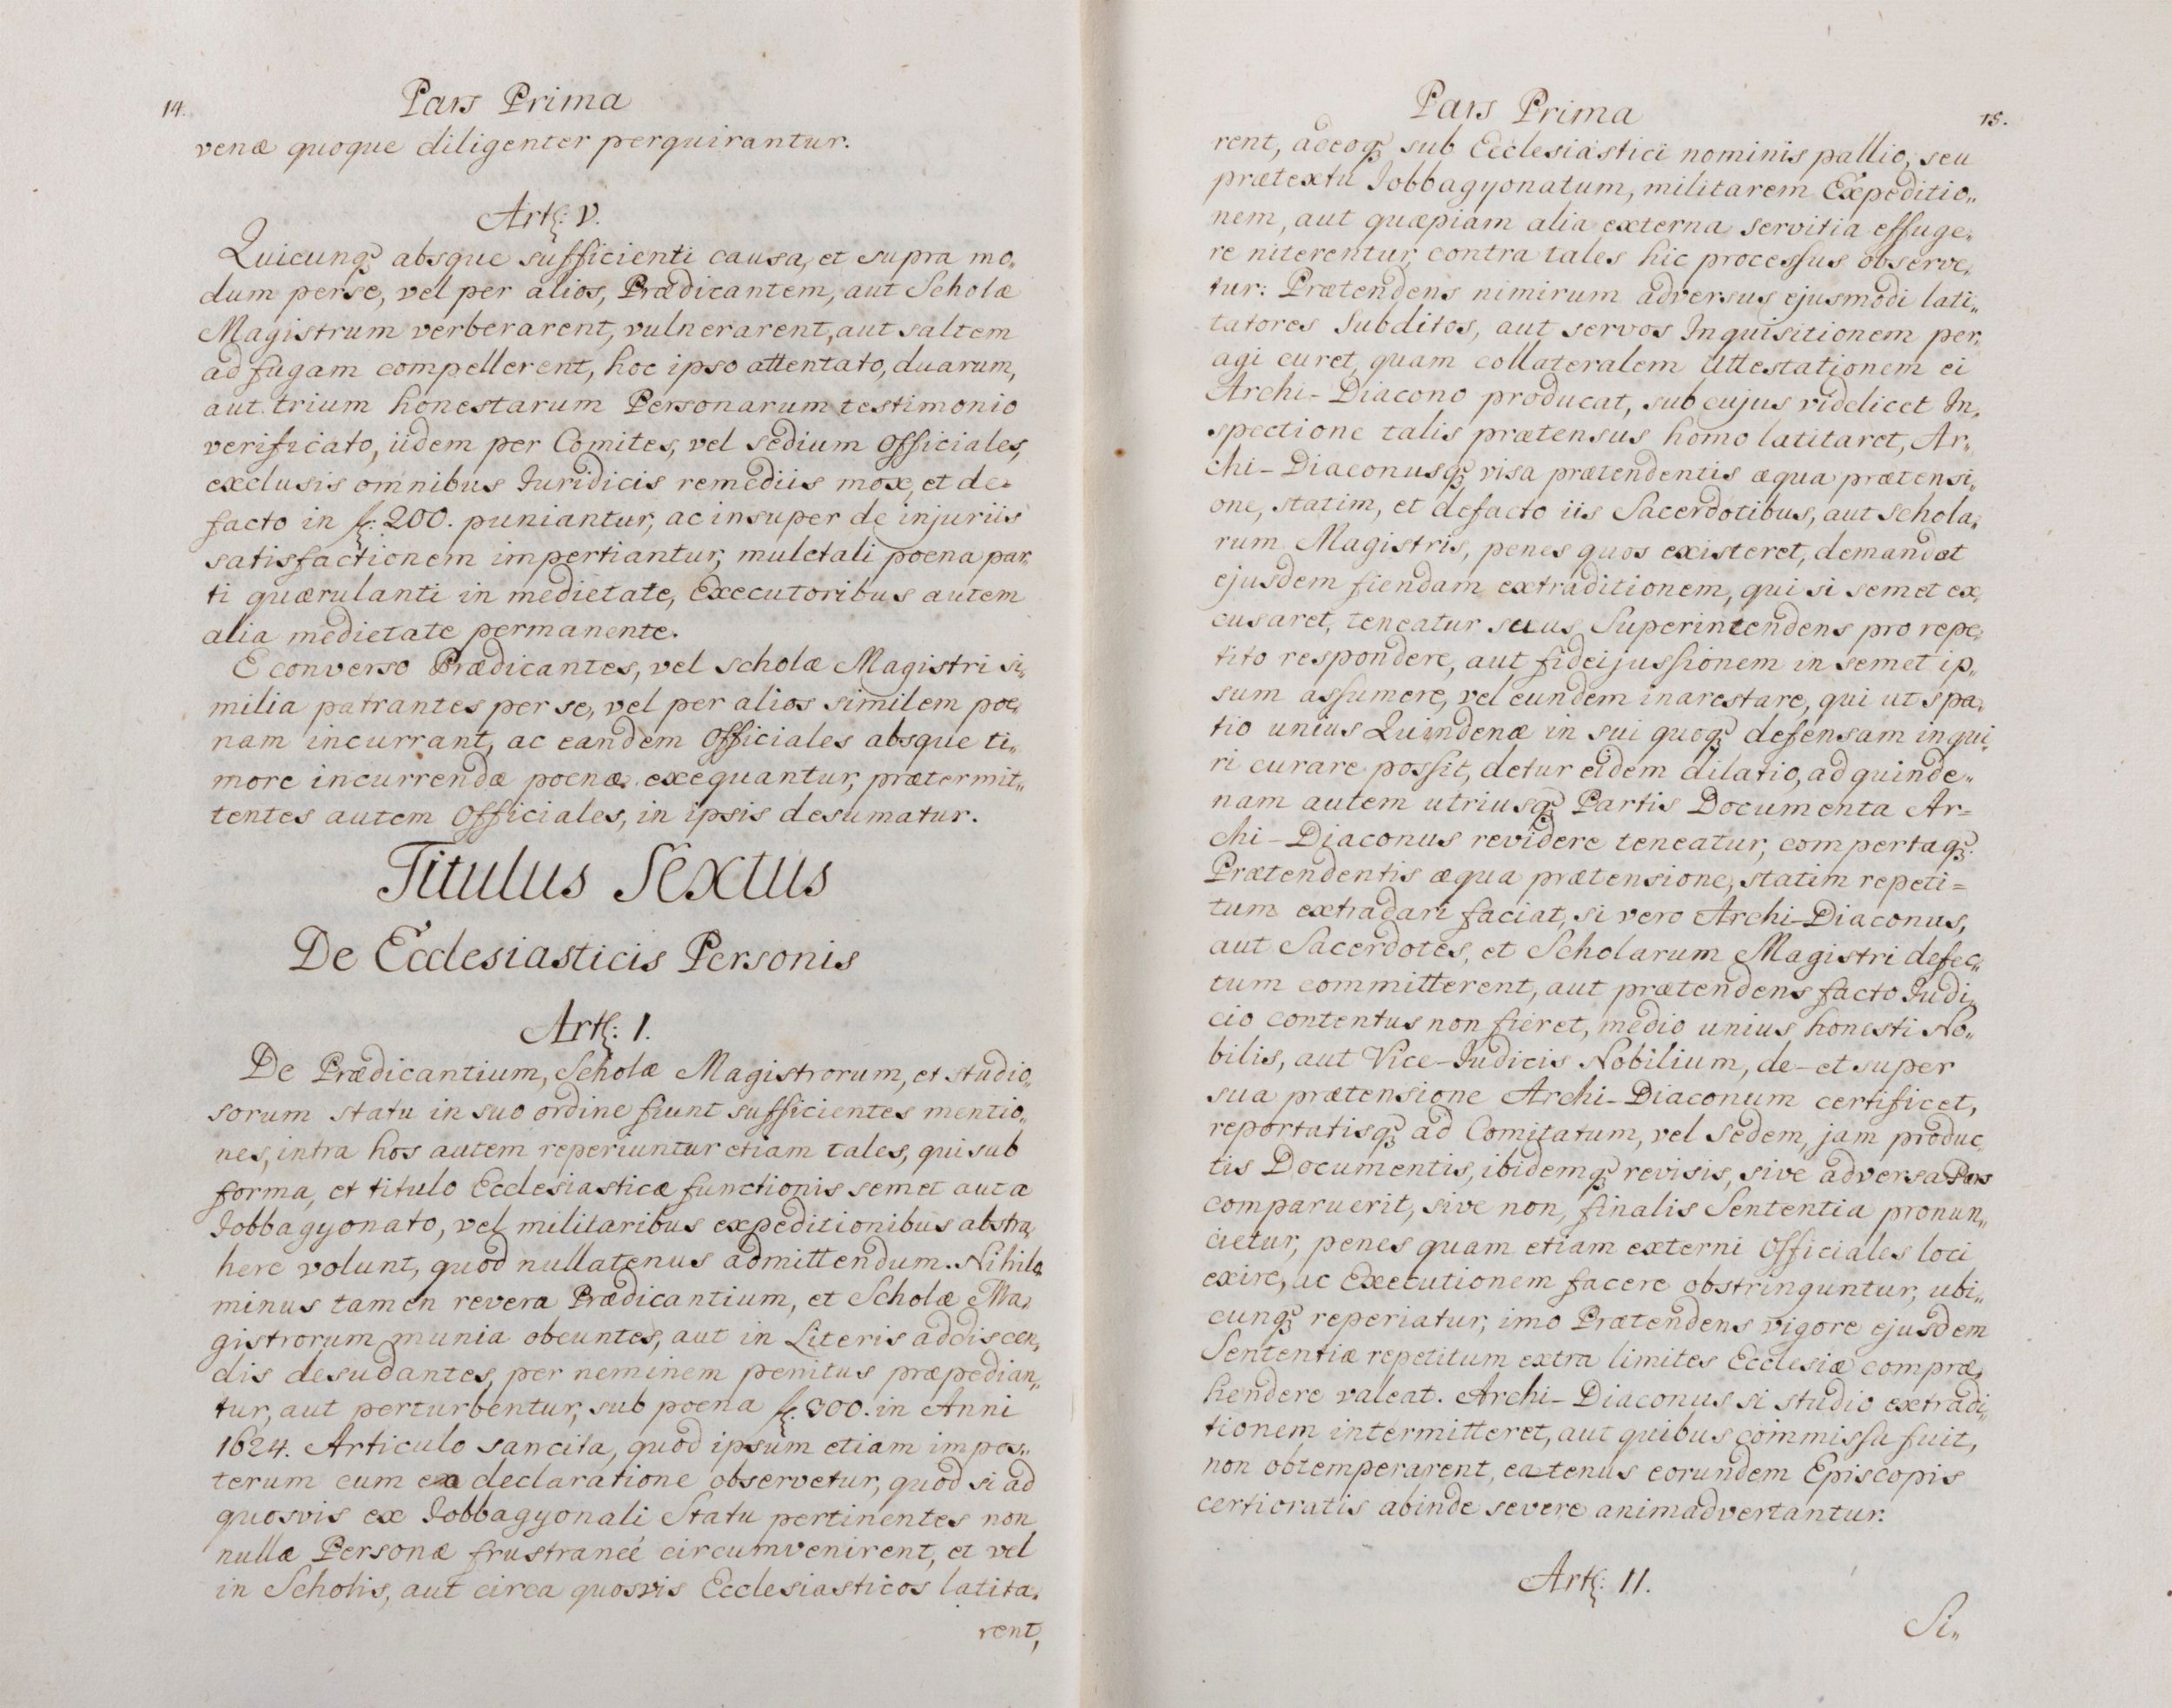 14.
Pars Prima
venæ quoque diligenter perquirantur.
Art: V.
Quicunqꝫ absque sufficienti causa, et supra mo„
dum perse, vel per alios, Prædicantem, aut Scholæ
Magistrum verberarent, vulnerarent, aut saltem
ad fugam compellerent, hoc ipso attentato, duarum,
aut trium honestarum Personarum testimonio
verificato, iidem per Comites, vel sedium Officiales,
exclusis omnibus Juridicis remediis mox, et de„
facto in f: 200. puniantur, ac insuper de injuriis
satisfactionem impertiantur, mulctali poena par„
ti quærulanti in medietate, Executoribus autem
alia medietate permanente.
E converso Prædicantes, vel scholæ Magistri si„
milia patrantes per se, vel per alios similem poe„
nam incurrant, ac eandem Officiales absque ti„
more incurrendæ poenæ exequantur, prætermit„
tentes autem Officiales, in ipsis desumatur.
Titulus Sextus
De Ecclesiasticis Personis
Art: I.
De Prædicantium, Scholæ Magistrorum, et studio„
sorum statu in suo ordine fiunt sufficientes mentio„
nes, intra hos autem reperiuntur etiam tales, qui sub
forma, et titulo Ecclesiasticæ functionis semet aut a
Jobbagyonato, vel militaribus expeditionibus abstra„
here volunt, quod nullatenus admittendum. Nihilo
minus tamen revera Prædicantium, et Scholæ Ma„
gistrorum munia obeuntes, aut in Literis addiscen„
dis desudantes, per neminem penitus præpedian„
tur, aut perturbentur, sub poena f: 300. in Anni
1624. Articulo sancita, quod ipsum etiam impos„
terum cum ea declaratione observetur, quod si ad
quosvis ex Jobbagyonali Statu pertinentes non
nullæ Personæ frustraneé circumvenirent, et vel
in Scholis, aut circa quosvis Ecclesiasticos latita„
rent,
Pars Prima
15.
rent, adeoqꝫ sub Ecclesiastici nominis pallio, seu
prætextu Jobbagyonatum, militarem Expeditio„
nem, aut quæpiam alia externa servitia effuge„
re niterentur, contra tales hic processus observe„
tur: Prætendens nimirum adversus ejusmodi lati„
tatores Subditos, aut servos Inquisitionem per„
agi curet, quam collateralem Attestationem ei
Archi-Diacono producat, sub cujus videlicet In„
spectione talis prætensus homo latitaret, Ar„
chi-Diaconusqꝫ visa prætendentis æqua prætensi„
one, statim, et defacto iis Sacerdotibus, aut schola„
rum Magistris, penes quos existeret, demandet
ejusdem fiendam extraditionem, qui si semet ex„
cusaret, teneatur suus Superintendens pro repe„
tito respondere, aut fideijussionem in semet ip„
sum assumere, vel eundem inarestare, qui ut spa„
tio unius Quindenæ in sui quoqꝫ defensam inqui„
ri curare possit, detur eidem dilatio, ad quinde„
nam autem utriusqꝫ Partis Documenta Ar=
chi-Diaconus revidere teneatur, compertaqꝫ
Prætendentis æqua prætensione, statim repeti=
tum extradari faciat, si vero Archi-Diaconus,
aut Sacerdotes, et Scholarum Magistri defec„
tum committerent, aut prætendens facto Judi„
cio contentus non fieret, medio unius honesti No„
bilis, aut Vice-Judicis Nobilium, de-et super
sua prætensione Archi-Diaconum certificet,
reportatisqꝫ ad Comitatum, vel Sedem, jam produc„
tis Documentis, ibidemqꝫ revisis, sive adversa Pars
comparuerit, sive non, finalis Sententia pronun„
cietur, penes quam etiam externi Officiales loci
exire, ac Executionem facere obstringuntur, ubi„
cunqꝫ reperiatur, imo Prætendens vigore ejusdem
Sententiæ repetitum extra limites Ecclesiæ compræ„
hendere valeat. Archi-Diaconus si studio extradi„
tionem intermitteret, aut quibus commissu fuit,
non obtemperarent, eatenus eorundem Episcopis
certioratis abinde severe animadvertantur.
Art: II.
Si„